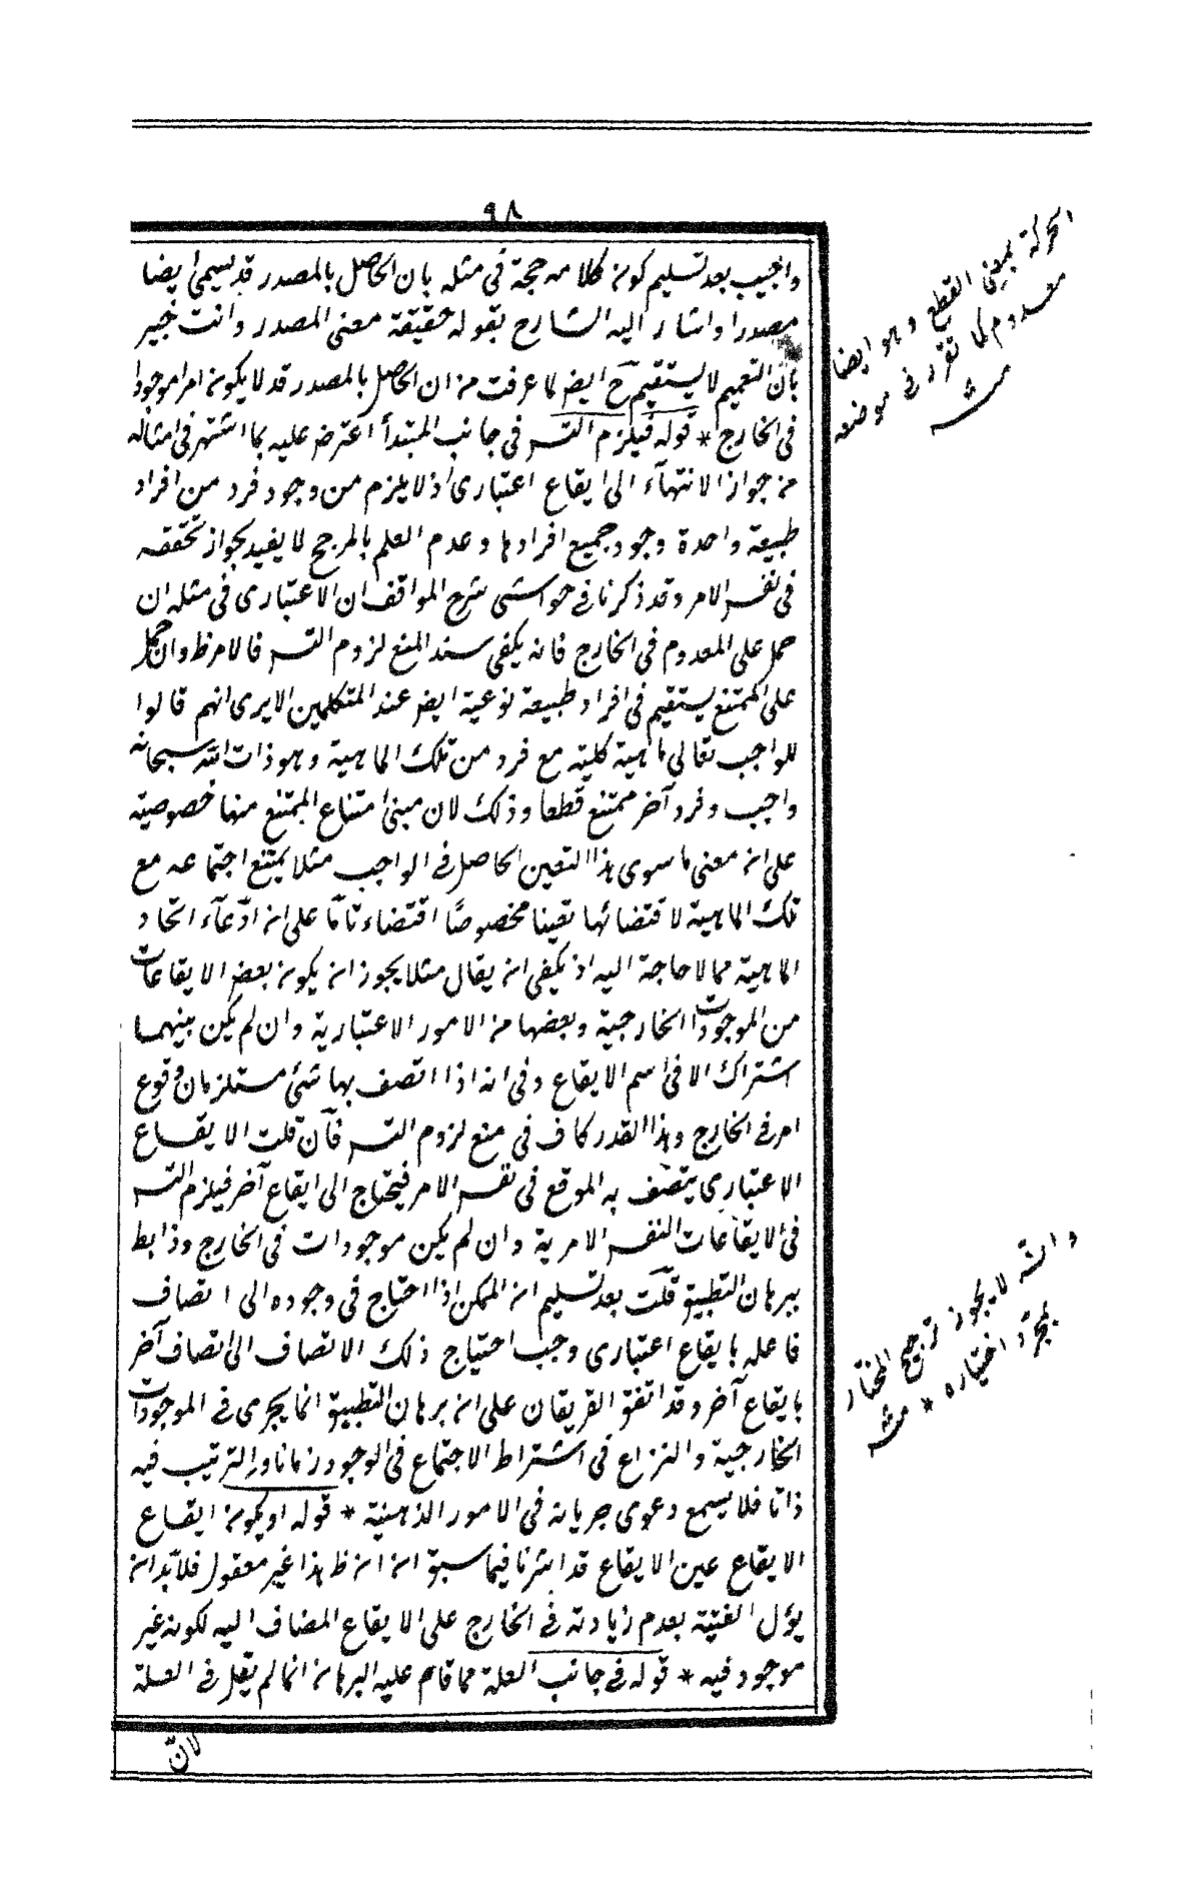 ٩٨
واجيب بعد تسليم كونه كلامه حجة في مثله بان الحاصل بالمصدر قد يسمى ايضا
مصدرا واشار اليه الشارح بقوله حقيقة معنى المصدر وانت خبير
بأن التعميم لا يستقيم ح ايض لما عرفت من ان الحاصل بالمصدر قد لا يكون امرا موجودا
في الخارج * قوله فيلزم التسـ في جانب المبتدأ اعترض عليه بما اشتهر في امثاله
من جواز الانتهآء الى ايقاع اعتبارى اذ لا يلزم من وجود فرد من افراد
طبيعة واحدة وجود جميع افرادها وعدم العلم بالمرجح لا يفيد لجواز تحققه
في نفس الامر وقد ذكرنا في حواشى شرح المواقف ان الاعتبارى في مثله ان
حمل على المعدوم في الخارج فانه يكفى سند المنع لزوم التسـ فالامر ظ وان حمل
على الممتنع يستقيم في افراد طبيعة نوعية ايض عند المتكلمين الا يرى انهم قالوا
للواجب تعالى ماهية كلية مع فرد من تلك الماهية وهو ذات الله سبحانه
واجب وفرد آخر ممتنع قطعا وذلك لان مبنى امتناع الممتنع منها خصوصية
على انه معنى ما سوى هذا التعين الحاصل في الواجب مثلا يمتنع اجتماعه مع
تلك الماهية لاقتضائها تعينا مخصوصًا اقتضاء تامّا على انه ادّعآء اتحاد
الماهية مما لا حاجة اليه اذ يكفى انه يقال مثلا يجوز انه يكون بعض الايقاعات
من الموجودات الخارجية وبعضها من الامور الاعتبارية وان لم يكن بينهما
اشتراك الا في اسم الايقاع وفي انه اذا اتصف بها شئ مستلزمان وقوع
امر في الخارج وهذا القدر كاف في منع لزوم التسـ فآن قلت الايقاع
الاعتبارى يتصف به الموقع في نفس الامر فيحتاج الى ايقاع آخر فيلزم التسـ
في الايقاعات النفس الامرية وان لم يكن موجودات في الخارج وذا بط
ببرهان التطبيق قلت بعد تسليم انه الممكن اذا احتاج في وجوده الى اتصاف
فاعله بايقاع اعتبارى وجب احتياج ذلك الاتصاف الى اتصاف آخر
بايقاع آخر وقد اتفق الفريقان على انه برهان التطبيق انما يجرى في الموجودات
الخارجية والنزاع في اشتراط الاجتماع في الوجود زمانا والترتيب فيه
ذاتا فلا يسمع دعوى جريانه في الامور الذهنية * قوله او يكون ايقاع
الايقاع عين الايقاع قد اشرنا فيما سبق انه انه ظ هذا غير معقول فلابد انه
يؤل العينية بعدم زيادته في الخارج على الايقاع المضاف اليه لكونه غير
موجود فيه * قوله في جانب العلة مما قام عليه البرهان انما لم يقل في العلة
لانّ
الحركة بمعنى القطع وهو ايضا
معدوم كما تقرر في موضعه
منه
والله لا يجوز ترجيح المختار
بمجرّد اختياره * منه